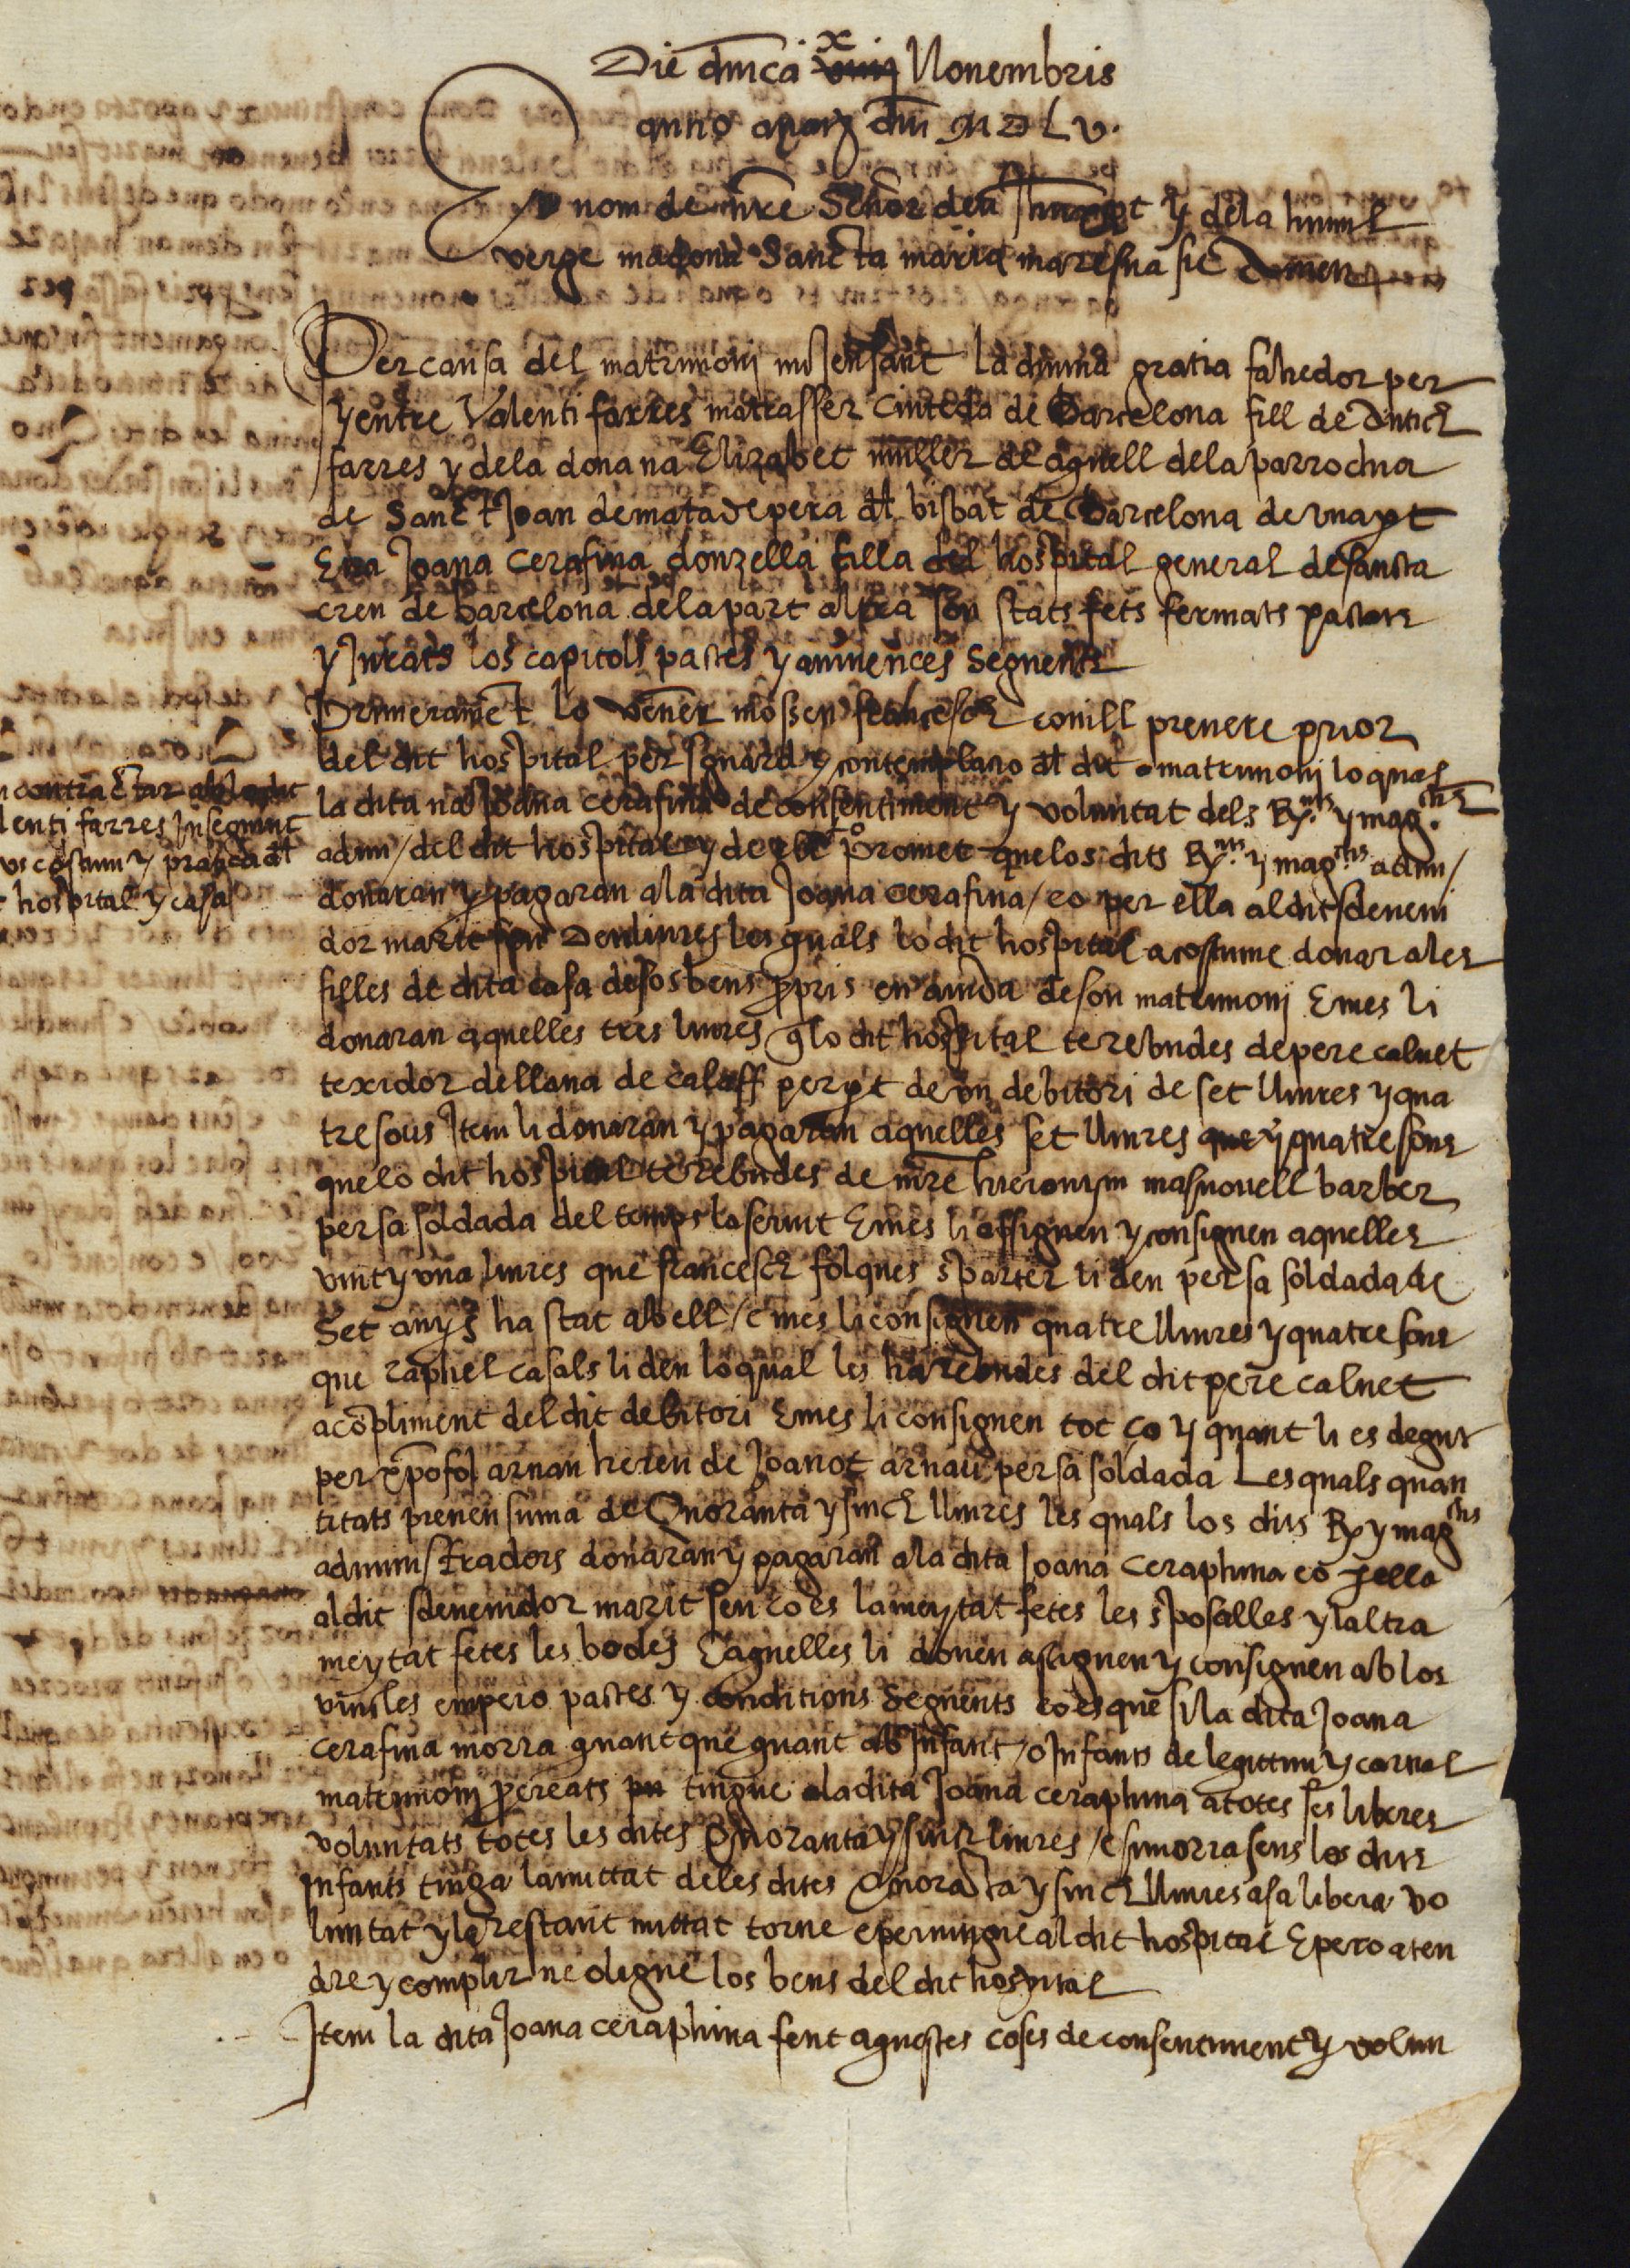 Die dnica x viiij Nouembris
anno a natte dni MDLv.
En nom de nre Senor deu y dela humil
verge madona Sancta maria mare sua sie Amen
Per causa del matrimoni mijensant la diuina gratia fahedor per
y entre Valenti farres matrasser Ciuteda de Barcelona fill de Antich
farres y dela dona na Elizabet muller de aquell dela parrochia
de Sanct Joan de matadepera del bisbat de Barcelona de una pt
E na Joana Cerafina donzella filla del hospital general de sancta
creu de Barcelona dela part altra son stats fets fermats pactats
y Jurats los capitols pactes y auinences Seguents
Primerament lo Vener mossen francesch conill preuere prior
del dit hospital per sguard y contemplatio del dit matrimoni lo qual
la dita na Joana Cerafina de consentiment y voluntat dels Rts y magchs
adm/ del dit hospital y de ell promet que los dits Rts y magchs adm/
donaran y pagaran a la dita Joana cerafina / co per ella al dit sdeueni
dor marit seu Deu liures les quals lo dit hospital acostume donar a les
filles de dita casa de sos bens ppris en aiuda de son matrimonj E mes li
donaran aquelles tres liures q lo dit hospital te rebudes de pere caluet
texidor de llana de calaff per pt de un debitori de set lliures y qua
tre sous Item li donaran y pagaran aquelles set lliures que y quatre sous
que lo dit hospital te rebudes de mre hieronym masnouell barber
per sa soldada del temps lo seruit E mes li assignen y consignen aquelles
vint y una liures que francesch folques sparter li deu per sa soldada de
Set anys ha stat ab ell / E mes li consignen quatre lliures y quatre sous
que raphel casals li deu lo qual les ha rebudes del dit pere caluet
a compliment del dit debitori E mes li consignen tot ço y quant li es degut
per xpofol arnau hereu de Joanot arnau per sa soldada Les quals quan
titats prenen suma de Quoranta y sinch lliures les quals los dits R y magchs
administradors donaran y pagaran a la dita Joana Ceraphina co p ella
al dit sdeuenidor marit seu ço es la meytat fetes les sposalles y laltra
meytat fetes les bodes E aquelles li donen assignen y consignen ab los
vincles empero pactes y conditions Seguents ço es que si la dita Joana
Cerafina morra quant que quant ab Infant / o Infants de legittim y carnal
matrimoni pcreats pu tingue a la dita Joana ceraphina a totes ses liberes
voluntats totes les dites Quoranta y sinch liures / E si morra sens los dits
Infants tinga la mittat de les dites Quoranta y sinch lliures a sa libera vo
luntat y la restant mittat torne e peruingue al dit hospital E pero aten
dre y complir ne oligue los bens del dit hospital
Item la dita Joana ceraphina fent aquestes coses de consentiment y volun
contractar ab lo dit
lenti farres Inseguint
us costum y pratica del
hospital y casa